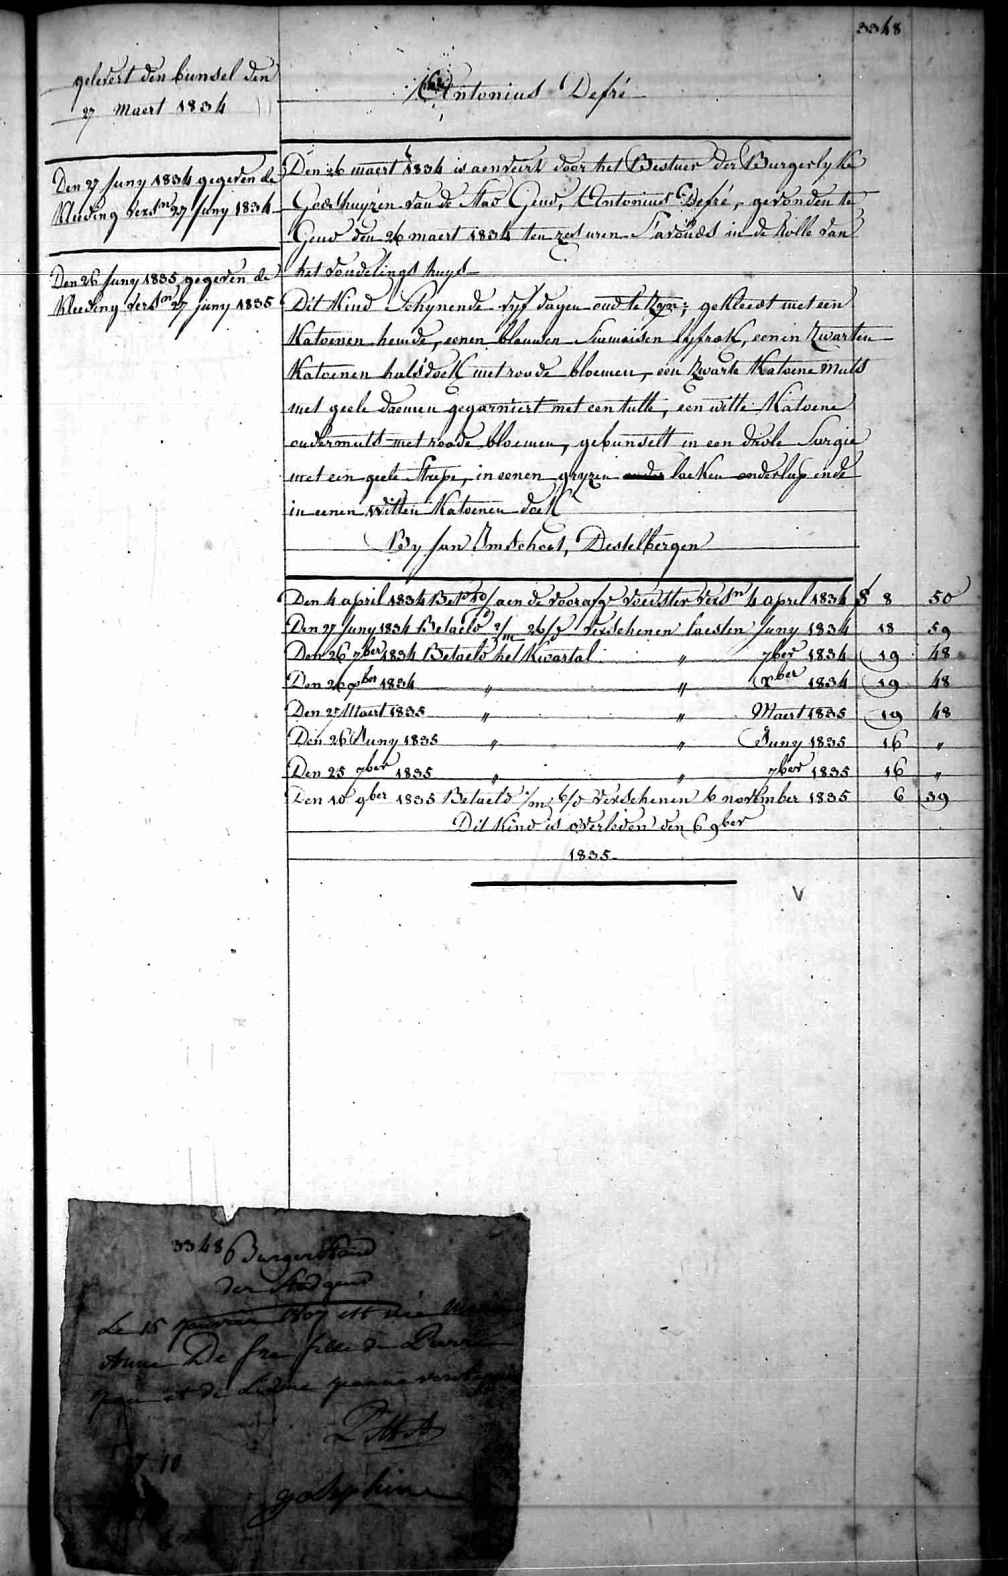 3348
gelevert den bunsel den
27 Maert 1834
Antonius Defré
Den 27 Juny 1834 gegeven de
Kleeding versn 27 Juny 1834
Den 26 Juny 1835 gegeven de
Kleeding versn 27 juny 1835
Den 26 maert 1834 is aenveirt door het Bestuer der Burgerlyke
Godshuyzen van de Stad Gend, Antonius Defré, gevonden te
Gend den 26 maert 1834 ten zes uren S'avonds in de rolle van
het vondelings huys
Dit Kind Schynende vyf dagen oud te Zyn; gekleedt met een
Katoenen hemde, eenen blauwen Siamoisen lyfrok, eenen Zwarten
Katoenen halsdoek met roode bloemen, een Zwarte Katoene muts
met geele daemen gegarniert met een tulle, een witte Katoene
ondermuts met roode bloemen, gebunselt in een drole Sargie
met een geele Strepe, in eenen gryzen laeken onderlyf ende
in eenen Witten Katoenen doek
By Jan Imschoot, Destelbergen
Den 4 april 1834 aen de voorafge voedster versn 4 april 1834 8 50
Den 27 Juny 1834 Betaeld 2/m 26/d verschenen laesten Juny 1834 18 59
Den 26 7ber 1834 Betaeld het Kwartal " 7ber 1834 19 48
Den 26 xber 1834 " " xber 1834 19 48
Den 27 Maert 1835 " " Maert 1835 19 48
Den 26 Juny 1835 " " Juny 1835 16 "
Den 25 7ber 1835 " " 7ber 1835 16 "
Den 10 9ber 1835 Betaeld 1/m 6/d verschenen 6 november 1835 6 39
Dit Kind is overleden den 6 9ber
1835
V
3348 Burgerstand
der Stad gend
Le 15 janvier 1807 est née Marie
Anne De fre fille de Pierre
et de
7 10
josephine